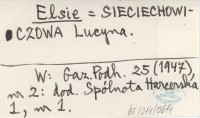 Elsie = SIECIECHOWI-
CZOWA Lucyna.
W: Gaz. Podh. 25 (1947)
nr 2: dod. Spólnota Harcerska
1, nr 1.